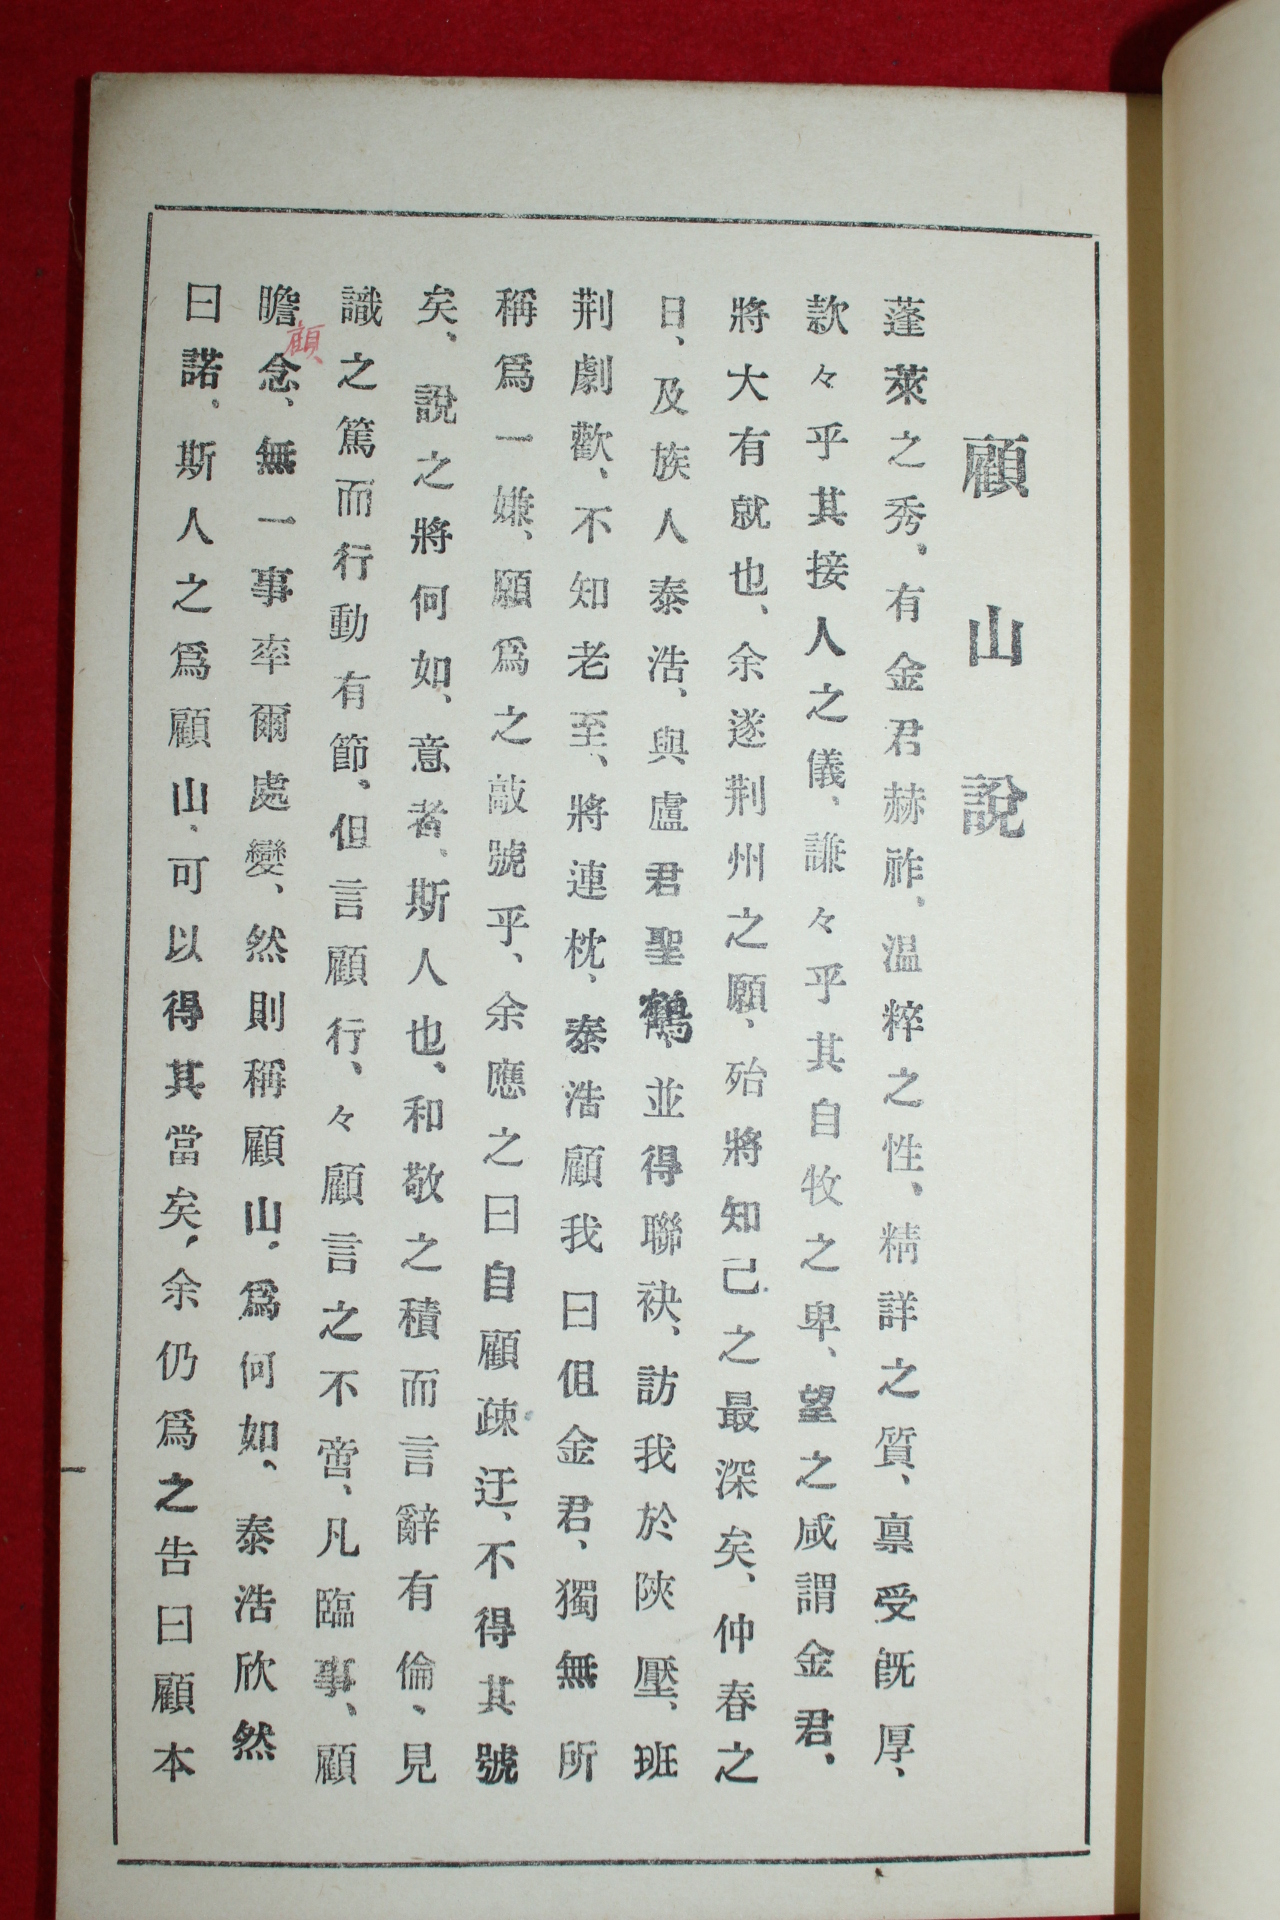 顧山說
蓬萊之秀、有金君赫祚、温粹之性、精詳之質、禀受旣厚、
款々乎其接人之儀、謙々乎其自牧之卑、望之咸謂金君、
將大有就也、余遂荆州之願、殆將知己之最深矣、仲春之
日、及族人泰浩、與盧君聖鶴、並得聯袂、訪我於陜壓、班
荆劇歡、不知老至、將連枕、泰浩顧我曰但金君、獨無所
稱爲一嫌、願爲之敲號乎、余應之曰自顧疎迂、不得其號
矣、說之將何如、意者、斯人也、和敬之積而言辭有倫、見
識之篤而行動有節、但言顧行、々顧言之不啻、凡臨事、顧
瞻念、無一事率爾處變、然則稱顧山、爲何如、泰浩欣然
顧
曰諾、斯人之爲顧山、可以得其當矣、余仍爲之告曰顧本